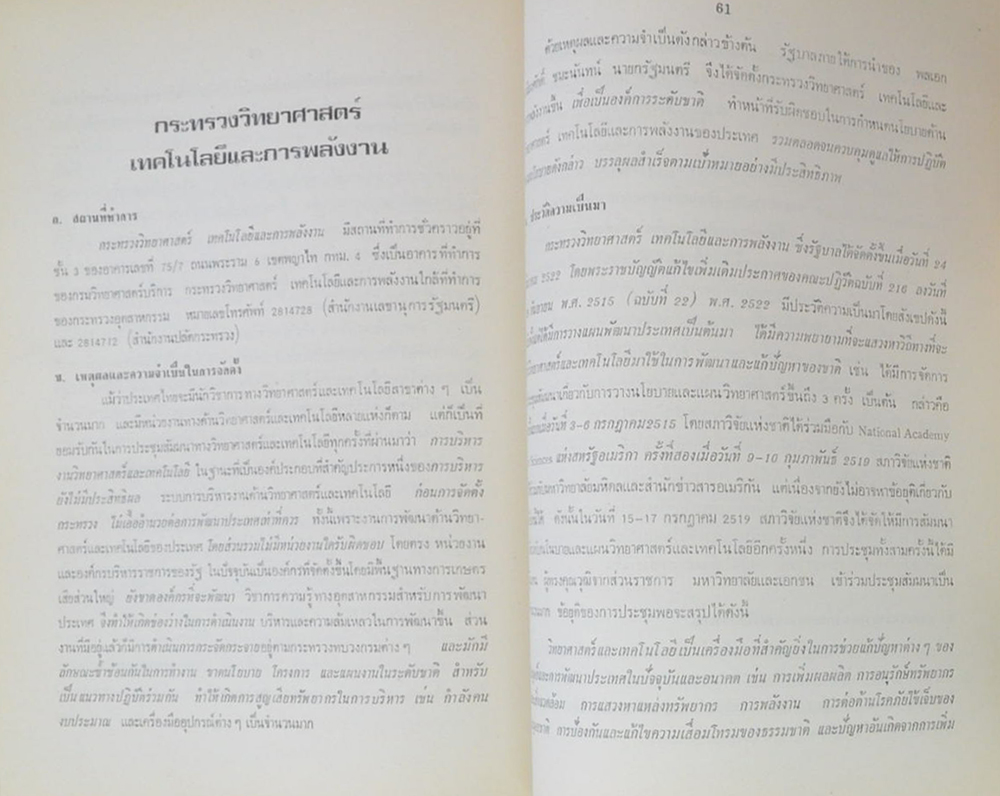 กระทรวงวิทยาศาสตร์
เทคโนโลยีและการพลังงาน
ก. สถานที่ทำการ
กระทรวงวิทยาศาสตร์ เทคโนโลยีและการพลังงาน มีสถานที่ทำการชั่วคราวอยู่ที่
ชั้น 3 ของอาคารเลขที่ 75/7 ถนนพระราม 6 เขตพญาไท กทม. 4 ซึ่งเป็นอาคารที่ทำการ
ของกรมวิทยาศาสตร์บริการ กระทรวงวิทยาศาสตร์ เทคโนโลยีและการพลังงานใกล้ที่ทำการ
ของกระทรวงอุตสาหกรรม หมายเลขโทรศัพท์ 2814728 (สำนักงานเลขานุการรัฐมนตรี)
และ 2814712 (สำนักงานปลัดกระทรวง)
ข. เหตุผลและความจำเป็นในการจัดตั้ง
แม้ว่าประเทศไทยจะมีนักวิชาการทางวิทยาศาสตร์และเทคโนโลยีสาขาต่าง ๆ เป็น
จำนวนมาก และมีหน่วยงานทางด้านวิทยาศาสตร์และเทคโนโลยีหลายแห่งก็ตาม แต่ก็เป็นที่
ยอมรับกันในการประชุมสัมมนาทางวิทยาศาสตร์และเทคโนโลยีทุกครั้งที่ผ่านมาว่า การบริหาร
งานวิทยาศาสตร์และเทคโนโลยี ในฐานะที่เป็นองค์ประกอบที่สำคัญประการหนึ่งของการบริหาร
ยังไม่มีประสิทธิผล ระบบการบริหารงานด้านวิทยาศาสตร์และเทคโนโลยี ก่อนการจัดตั้ง
กระทรวง ไม่เอื้ออำนวยต่อการพัฒนาประเทศเท่าที่ควร ทั้งนี้เพราะงานการพัฒนาด้านวิทยา-
ศาสตร์และเทคโนโลยีของประเทศ โดยส่วนรวมไม่มีหน่วยงานใดรับผิดชอบ โดยตรง หน่วยงาน
และองค์กรบริหารราชการของรัฐ ในปัจจุบันเป็นองค์กรที่จัดตั้งขึ้นโดยมีพื้นฐานทางการเกษตร
เสียส่วนใหญ่ ยังขาดองค์กรที่จะพัฒนา วิชาการความรู้ทางอุตสาหกรรมสำหรับการพัฒนา
ประเทศ จึงทำให้เกิดช่องว่างในการดำเนินงาน บริหารและความล้มเหลวในการพัฒนาขึ้น ส่วน
งานที่มีอยู่แล้วก็มีการดำเนินการกระจัดกระจายอยู่ตามกระทรวงทบวงกรมต่าง ๆ และมักมี
ลักษณะซ้ำซ้อนกันในการทำงาน ขาดนโยบาย โครงการ และแผนงานในระดับชาติ สำหรับ
เป็นแนวทางปฏิบัติร่วมกัน ทำให้เกิดการสูญเสียทรัพยากรในการบริหาร เช่น กำลังคน
งบประมาณ และเครื่องมืออุปกรณ์ต่าง ๆ เป็นจำนวนมาก
61
ด้วยเหตุผลและความจำเป็นดังกล่าวข้างต้น รัฐบาลภายใต้การนำของ พลเอก
ชมะนันทน์ นายกรัฐมนตรี จึงได้จัดตั้งกระทรวงวิทยาศาสตร์ เทคโนโลยีและ
ขึ้น เพื่อเป็นองค์การระดับชาติ ทำหน้าที่รับผิดชอบในการกำหนดนโยบายด้าน
เทคโนโลยีและการพลังงานของประเทศ รวมตลอดจนควบคุมดูแลให้การปฏิบัติ
ดังกล่าว บรรลุผลสำเร็จตามเป้าหมายอย่างมีประสิทธิภาพ
ประวัติความเป็นมา
กระทรวงวิทยาศาสตร์ เทคโนโลยีและการพลังงาน ซึ่งรัฐบาลได้จัดตั้งขึ้นเมื่อวันที่ 24
2522 โดยพระราชบัญญัติแก้ไขเพิ่มเติมประกาศของคณะปฏิวัติฉบับที่ 216 ลงวันที่
พ.ศ. 2515 (ฉบับที่ 22) พ.ศ. 2522 มีประวัติความเป็นมาโดยสังเขปดังนี้
มีการวางแผนพัฒนาประเทศเป็นต้นมา ได้มีความพยายามที่จะแสวงหาวิถีทางที่จะ
และเทคโนโลยีมาใช้ในการพัฒนาและแก้ปัญหาของชาติ เช่น ได้มีการจัดการ
เกี่ยวกับการวางนโยบายและแผนวิทยาศาสตร์ขึ้นถึง 3 ครั้ง เป็นต้น กล่าวคือ
3-6 กรกฎาคม 2515 โดยสภาวิจัยแห่งชาติได้ร่วมมือกับ National Academy
แห่งสหรัฐอเมริกา ครั้งที่สองเมื่อวันที่ 9-10 กุมภาพันธ์ 2519 สภาวิจัยแห่งชาติ
มหาวิทยาลัยมหิดลและสำนักข่าวสารอเมริกัน แต่เนื่องจากยังไม่อาจหาข้อยุติเกี่ยวกับ
ดังนั้นในวันที่ 15-17 กรกฎาคม 2519 สภาวิจัยแห่งชาติจึงได้จัดให้มีการสัมมนา
และแผนวิทยาศาสตร์และเทคโนโลยีอีกครั้งหนึ่ง การประชุมทั้งสามครั้งนี้ได้มี
ผู้ทรงคุณวุฒิจากส่วนราชการ มหาวิทยาลัยและเอกชน เข้าร่วมประชุมสัมมนาเป็น
ข้อยุติของการประชุมพอจะสรุปได้ดังนี้
วิทยาศาสตร์และเทคโนโลยีเป็นเครื่องมือที่สำคัญยิ่งในการช่วยแก้ปัญหาต่าง ๆ ของ
และการพัฒนาประเทศในปัจจุบันและอนาคต เช่น การเพิ่มผลผลิต การอนุรักษ์ทรัพยากร
การแสวงหาแหล่งทรัพยากร การพลังงาน การต่อต้านโรคภัยไข้เจ็บของ
การป้องกันและแก้ไขความเสื่อมโทรมของธรรมชาติ และปัญหาอันเกิดจากการเพิ่ม